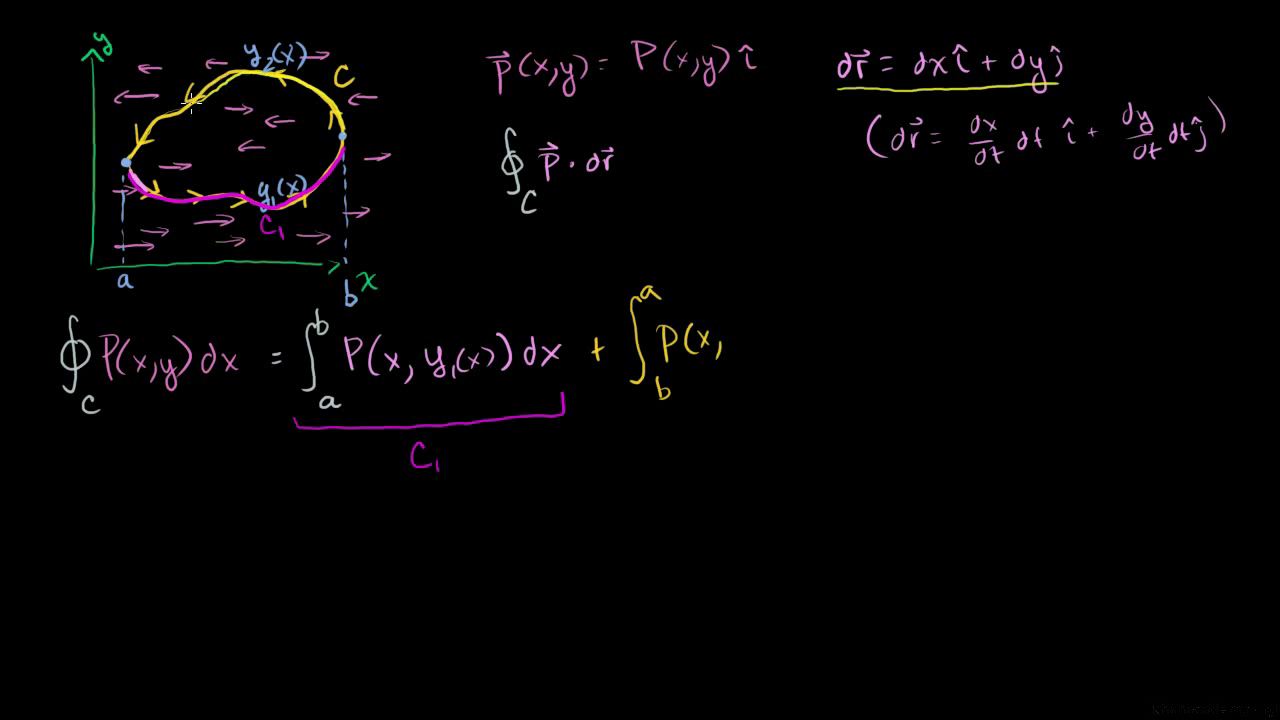 y
y₂(x)
C
y₁(x)
C₁
a
b
x
p⃗(x,y) = P(x,y) î
∮_C p⃗ · dr⃗
dr⃗ = dx î + dy ĵ
(dr⃗ = dx/dt dt î + dy/dt dt ĵ)
∮_C P(x,y) dx = ∫_a^b P(x, y₁(x)) dx + ∫_b^a P(x,
C₁